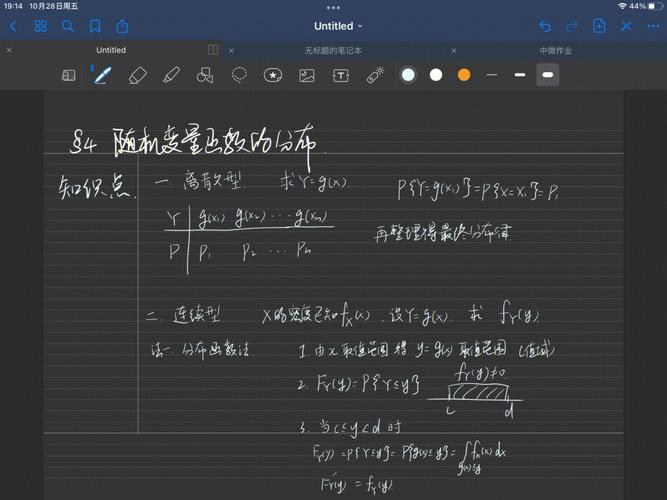 19:14 10月28日周五 44%
Untitled
Untitled 无标题的笔记本 中微作业
§4 随机变量函数的分布.
知识点. 一. 离散型. 求Y=g(x). P{Y=g(x₁)}=P{X=X₁}=P₁
Y g(x₁) g(x₂) ··· g(xₙ)
再整理得最终分布律
P P₁ P₂ ··· Pₙ
二. 连续型 X的密度已知fₓ(x). 设Y=g(x). 求 fY(y).
法一. 分布函数法. 1. 由x取值范围得 y=g(x) 取值范围 (值域)
2. FY(y)=P{Y≤y} fY(y)≠0.
c d
3. 当c≤y<d时
FY(y)=P{Y≤y}=P{g(x)≤y}=∫g(x)≤y fₓ(x)dx
FY'(y)=fY(y)